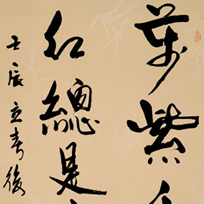 萬紫千
紅總是
壬辰立春後